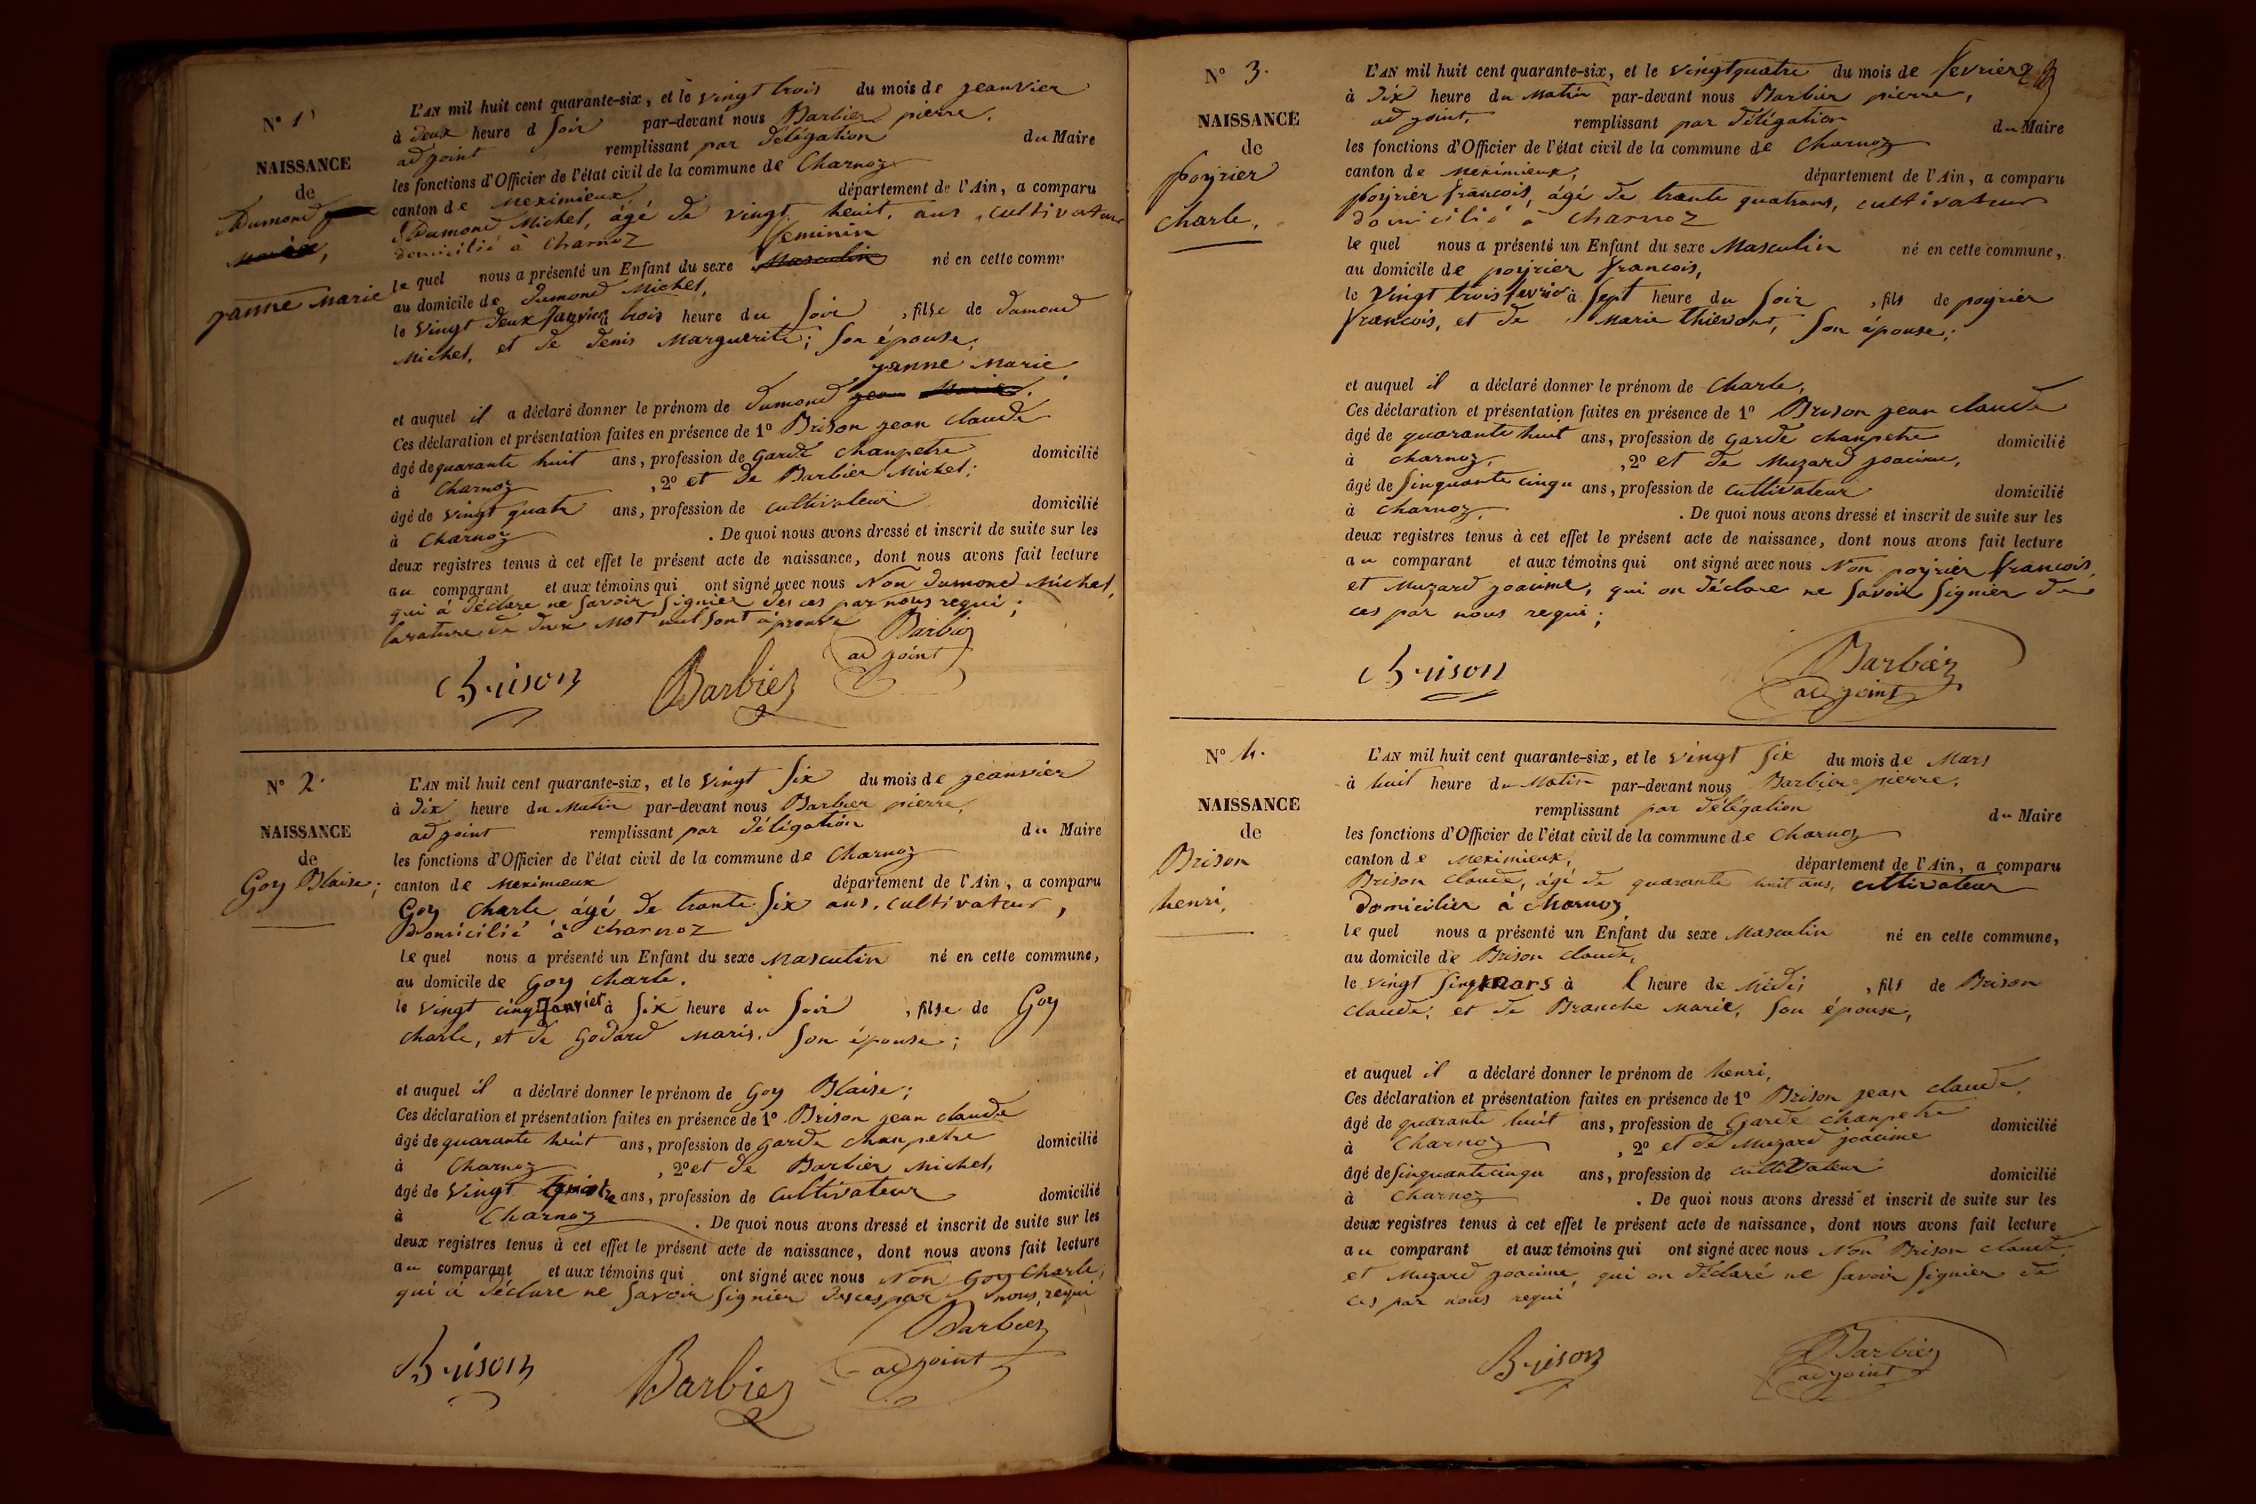 N° 1
NAISSANCE
de
Dumond
Marie,
janne Marie
L'AN mil huit cent quarante-six, et le vingt trois du mois de jeanvier
à deux heure d soir par-devant nous Barbier pierre,
adjoint remplissant par délégation du Maire
les fonctions d'Officier de l'état civil de la commune de Charnoz
canton de Meximieux, département de l'Ain, a comparu
Dumond Michel, âgé de vingt heuit, ans, cultivateur
domicilié à Charnoz feminin
le quel nous a présenté un Enfant du sexe Masculin né en cette comm
au domicile de dumond Michel,
le vingt deux janvier à trois heure du soir , filse de dumond
Michel, et de denis Marguerite; son épouse;
janne Marie
et auquel il a déclaré donner le prénom de dumond jean Marie.
Ces déclaration et présentation faites en présence de 1° Brison jean claude
âgé de quarante huit ans, profession de garde chanpetre domicilié
à Charnoz , 2° et de Barbier Michel;
âgé de vingt quatr ans, profession de cultivateur domicilié
à Charnoz . De quoi nous avons dressé et inscrit de suite sur les
deux registres tenus à cet effet le présent acte de naissance, dont nous avons fait lecture
au comparant et aux témoins qui ont signé avec nous Non dumond Michel,
qui à déclare ne savoir signier des ces par nous requi;
larature de deux mot nul sont aprouvé Barbier
adjoint
Brison Barbier
N° 2.
NAISSANCE
de
Goy Blaise;
L'AN mil huit cent quarante-six, et le vingt six du mois de jeanvier
à dix heure du Matin par-devant nous Barbier pierre,
adjoint remplissant par délégation du Maire
les fonctions d'Officier de l'état civil de la commune de Charnoz
canton de Meximieux département de l'Ain, a comparu
Goy Charle, âgé de trante six ans, cultivateur,
domicilié à charnoz
le quel nous a présenté un Enfant du sexe Masculin né en cette commune,
au domicile de Goy charle.
le vingt cinq Janvier à six heure du soir , filse de Goy
charle, et de Godard Marie. son épouse;
et auquel il a déclaré donner le prénom de Goy Blaise;
Ces déclaration et présentation faites en présence de 1° Brison jean claude
âgé de quarante heuit ans, profession de garde chanpetre domicilié
à Charnoz , 2° et de Barbier Michel,
âgé de vingt quatre ans, profession de cultivateur domicilié
à Charnoz . De quoi nous avons dressé et inscrit de suite sur les
deux registres tenus à cet effet le présent acte de naissance, dont nous avons fait lecture
au comparant et aux témoins qui ont signé avec nous Non Goy Charle,
qui à déclare ne savoir signier desces par nous requi
Barbier
Brison Barbier adjoint
N° 3.
NAISSANCE
de
poyrier
charle,
L'AN mil huit cent quarante-six, et le vingtquatre du mois de fevrier
à dix heure du Matin par-devant nous Barbier pierre,
adjoint, remplissant par délégation du Maire
les fonctions d'Officier de l'état civil de la commune de Charnoz
canton de Meximieux, département de l'Ain, a comparu
poyrier francois, âgé de trante quatrans, cultivateur
domicilié à Charnoz
le quel nous a présenté un Enfant du sexe Masculin né en cette commune,
au domicile de poyrier francois,
le vingt trois fevrier à sept heure du soir , fils de poyrier
francois, et de Marie son épouse;
et auquel il a déclaré donner le prénom de Charle,
Ces déclaration et présentation faites en présence de 1° Brison jean claude
âgé de quarante huit ans, profession de garde chanpetre domicilié
à charnoz, , 2° et de Muzard joacime,
âgé de sinquante cinqu ans, profession de cultivateur domicilié
à charnoz, . De quoi nous avons dressé et inscrit de suite sur les
deux registres tenus à cet effet le présent acte de naissance, dont nous avons fait lecture
au comparant et aux témoins qui ont signé avec nous Non poyrier francois,
et Muzard joacime, qui on déclare ne savoir signier de
ces par nous requi;
Brison Barbier
adjoint
N° 4.
NAISSANCE
de
Brison
henri,
L'AN mil huit cent quarante-six, et le vingt six du mois de Mars
à huit heure du Matin par-devant nous Barbier pierre,
remplissant par délégation du Maire
les fonctions d'Officier de l'état civil de la commune de Charnoz
canton de Meximieux, département de l'Ain, a comparu
Brison claude, âgé de quarante huit ans, cultivateur
domicilier à charnoz
le quel nous a présenté un Enfant du sexe Masculin né en cette commune,
au domicile de Brison claude,
le vingt sinq mars à l heure de Midi , fils de Brison
claude; et de Branche Marie, son épouse,
et auquel il a déclaré donner le prénom de henri,
Ces déclaration et présentation faites en présence de 1° Brison jean claude,
âgé de quarante huit ans, profession de Garde chanpetre domicilié
à Charnoz , 2° et de Muzard joacime
âgé de sinquante cinqu ans, profession de cultivateur domicilié
à Charnoz . De quoi nous avons dressé et inscrit de suite sur les
deux registres tenus à cet effet le présent acte de naissance, dont nous avons fait lecture
au comparant et aux témoins qui ont signé avec nous Non Brison claude,
et Muzard joacime, qui on déclaré ne savoir signier de
ces par nous requi
Brison Barbier
adjoint